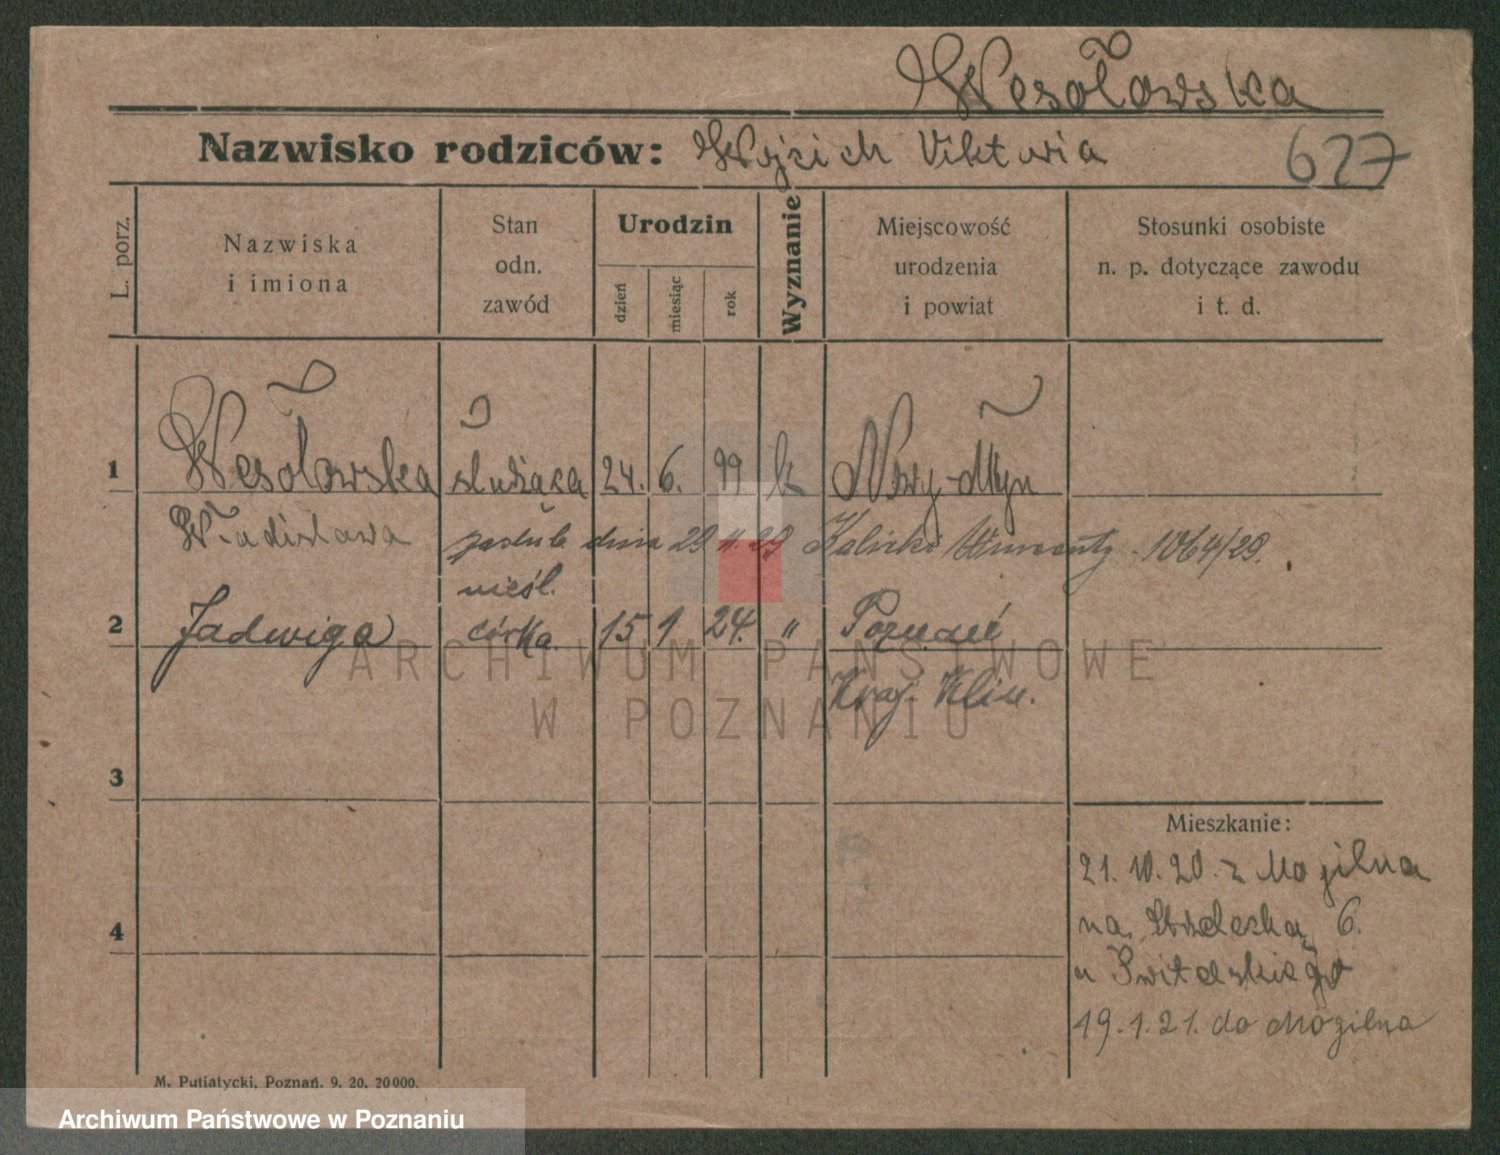 Wesołowska
Nazwisko rodziców: Wojcich Viktoria
627
L. porz.
Nazwiska
i imiona
Stan
odn.
zawód
Urodzin
dzień
miesiąc
rok
Wyznanie
Miejscowość
urodzenia
i powiat
Stosunki osobiste
n. p. dotyczące zawodu
i t. d.
1 Wesołowska służąca 24. 6. 99 k Nowy-Młyn
Władisława
zaślub dnia 29 11 29 Kalicki 1064/29.
nieśl.
2 Jadwiga córka. 15 1 24. " Poznań
Kraj. Klin.
3
4
Mieszkanie:
21. 10. 20. z Mogilna
na Strzelecką 6.
u Switalskiego
19. 1. 21. do Mogilna
M. Putiatycki, Poznań. 9. 20. 20000.
ARCHIWUM PAŃSTWOWE
W POZNANIU
Archiwum Państwowe w Poznaniu